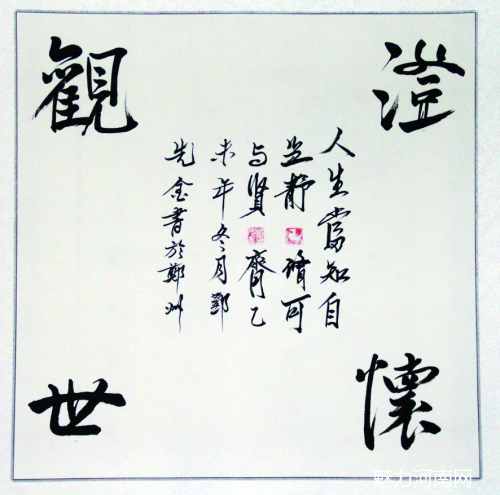 澄懷
觀世
人生當知自
足静修可
与賢齊乙
未年冬月鄧
先金書於鄭州
魅力河南网